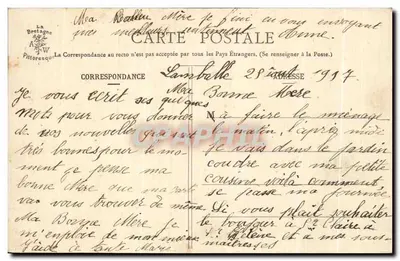 Ma Bonne Mère je finis en vous envoyant
mes meilleurs Anna
La Bretagne
Pittoresque
CARTE POSTALE
La Correspondance au recto n'est pas acceptée par tous les Pays Étrangers. (Se renseigner à la Poste.)
CORRESPONDANCE
Lamballe 28 1917
Ma
Je vous écrit ses quelques
mots pour vous donner
de mes nouvelles qui sont
très bonnes pour le mo-
ment je pense ma
bonne Mère que ma carte
va vous trouver de même
Ma Bonne Mère je
m'emplie de mon mieux
J'aide a tante Marie
Bonne Mère
A faire le ménage
le matin, l'après midi
je vais dans le jardin
coudre avec ma petite
cousine voilà comment
se passe ma journée
Si vous plait souhaiter
le bonjour à Ste Claire a
Ste Hélène et a mes sous-
maitresses